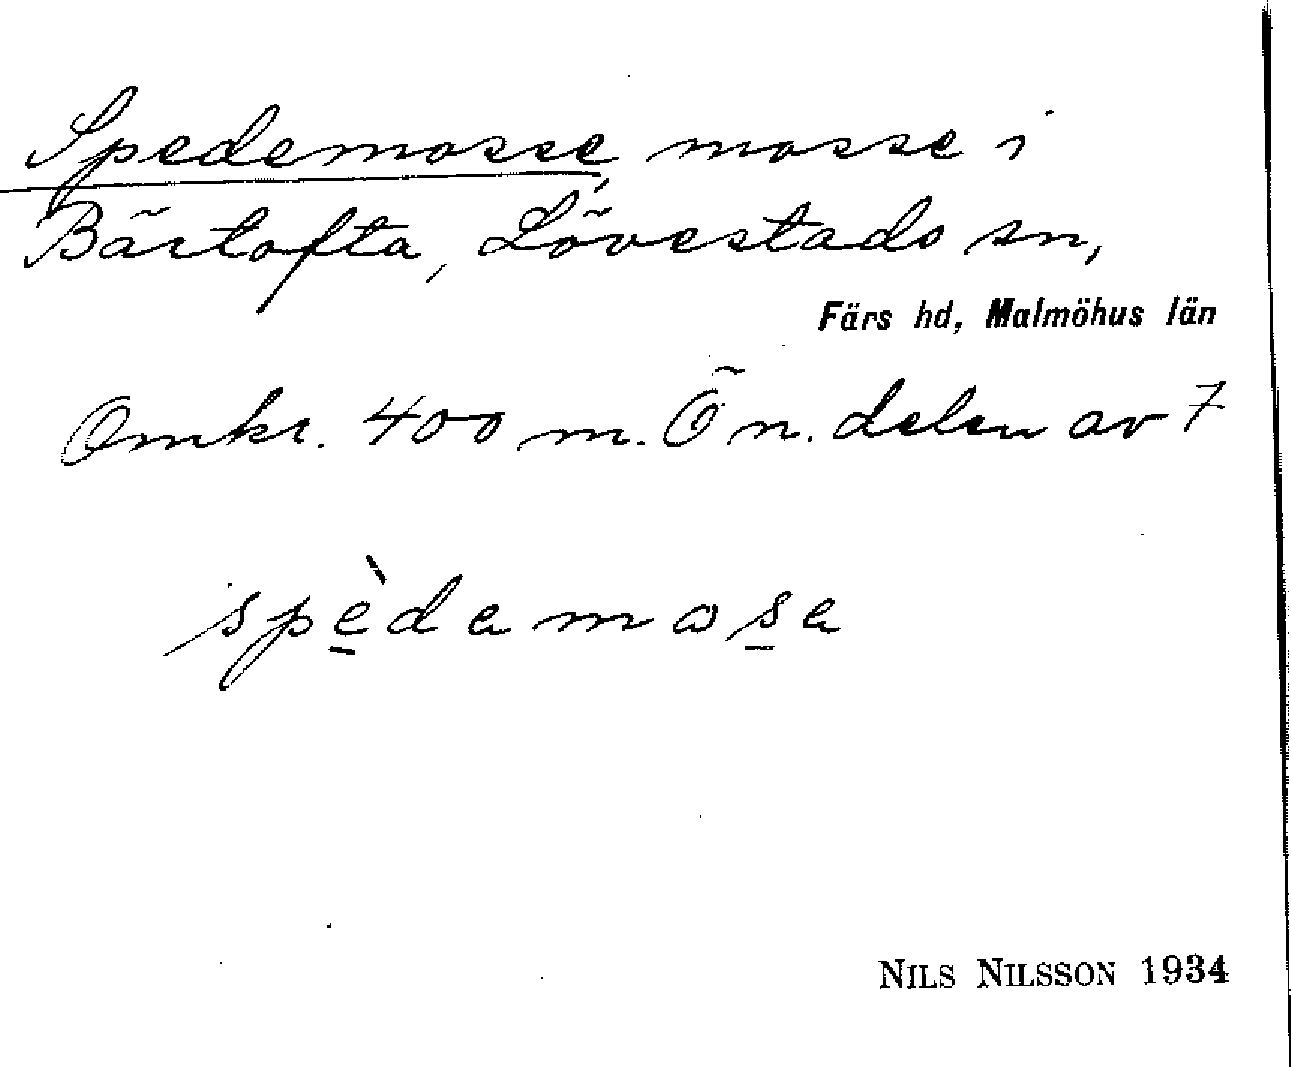 Spedemosse, mosse i
Bärtofta, Lövestads sn,
Färs hd, Malmöhus län
Omkr. 400 m. Ö n. delen av 7
spèdemosa
NILS NILSSON 1934